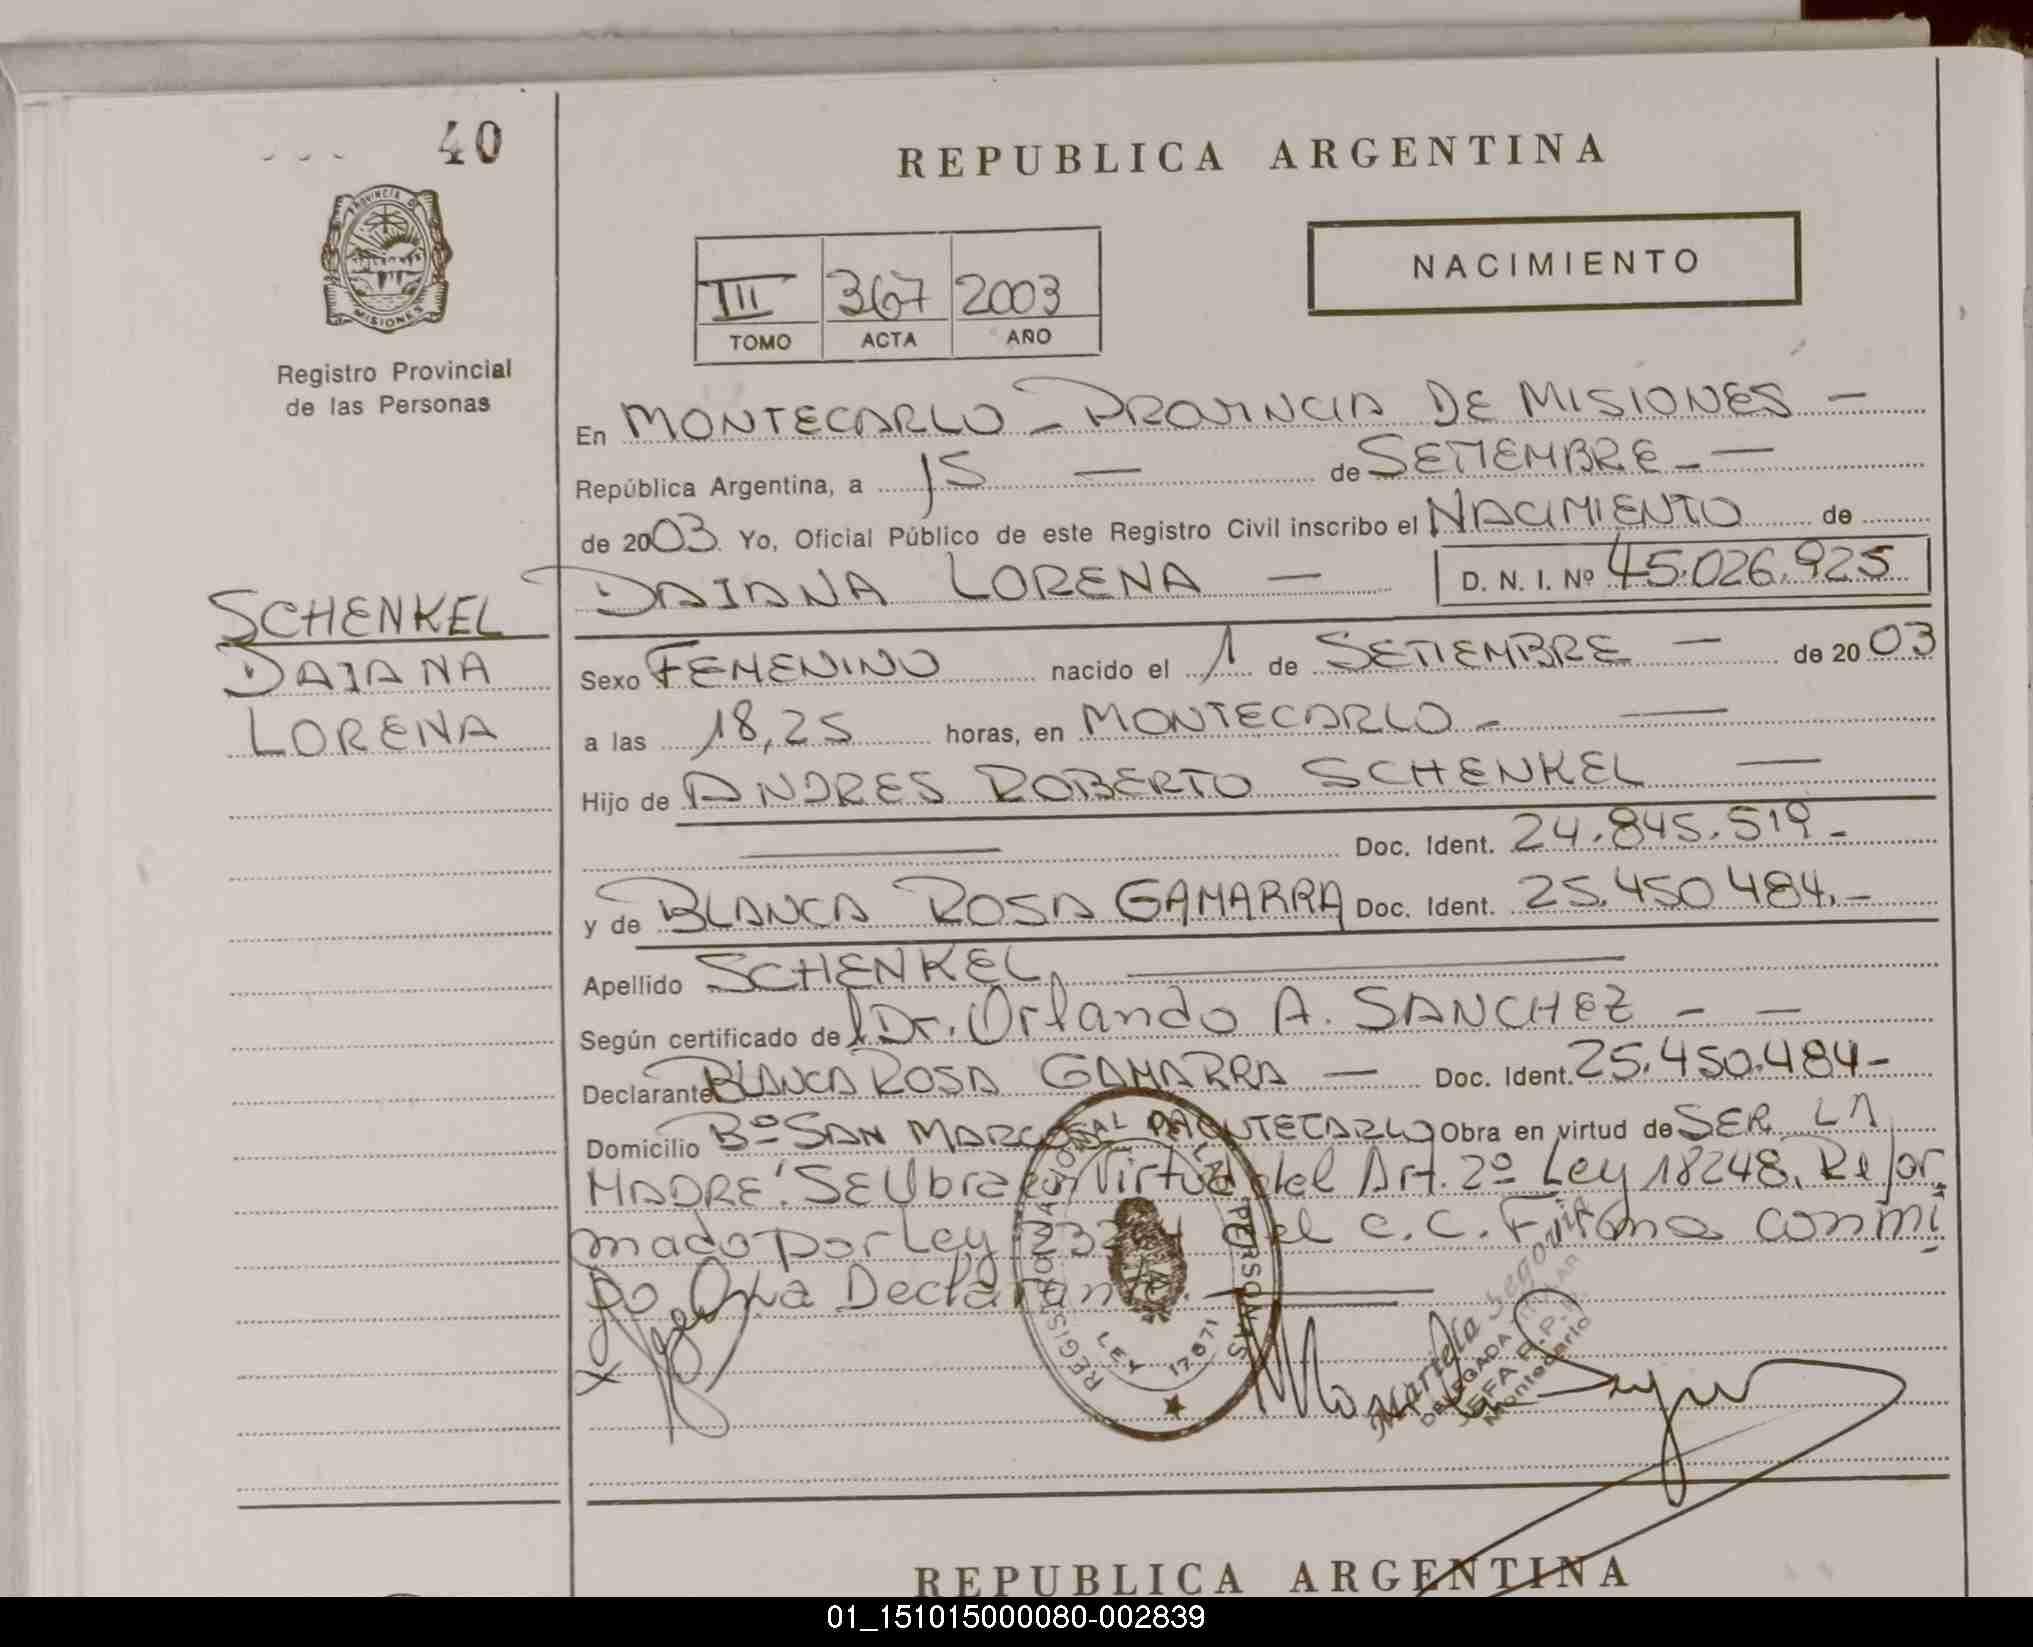 40
REPUBLICA ARGENTINA
PROVINCIA DE
MISIONES
Registro Provincial
de las Personas
III 367 2003
TOMO ACTA AÑO
NACIMIENTO
En MONTECARLO - PROVINCIA DE MISIONES -
República Argentina, a 15 — de SETIEMBRE - —
de 2003. Yo, Oficial Público de este Registro Civil inscribo el NACIMIENTO de
DAIANA LORENA — D. N. I. Nº 45.026.925
SCHENKEL
DAIANA
LORENA
Sexo FEMENINO nacido el 1 de SETIEMBRE — de 2003
a las 18,25 horas, en MONTECARLO - —
Hijo de ANDRES ROBERTO SCHENKEL —
— Doc. Ident. 24.845.519.-
y de BLANCA ROSA GAMARRA Doc. Ident. 25.450.484.-
Apellido SCHENKEL —
Según certificado de Dr. Orlando A. SANCHEZ - —
Declarante BLANCA ROSA GAMARRA — Doc. Ident. 25.450.484-
Domicilio Bº SAN MARCOS MONTECARLO Obra en virtud de SER LA
MADRE. SE Obra en Virtud del Art. 2º Ley 18248. Refor
mado por Ley del C.C. Firma conmi
go La Declarante. —
REGISTRO NACIONAL DE LAS PERSONAS
LEY 17671
Mariela Segovia
DELEGADA TITULAR
JEFA R.P.P.
Montecarlo
REPUBLICA ARGENTINA
01_151015000080-002839